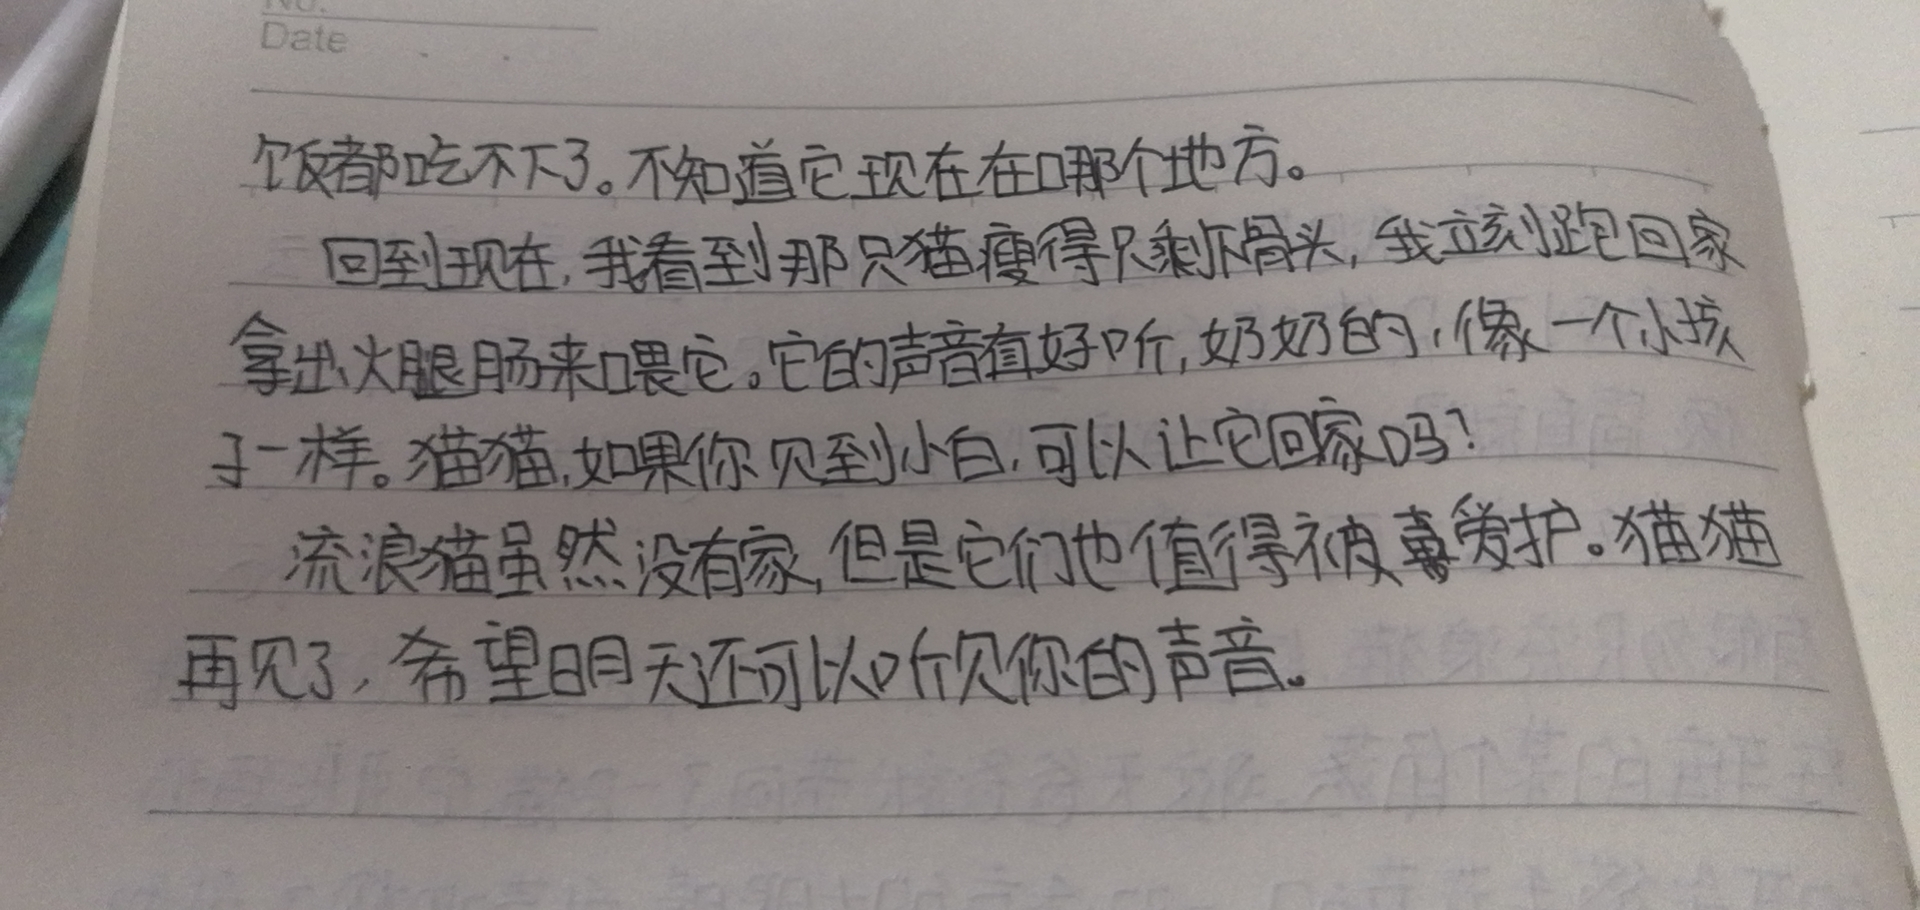 No.
Date
饭都吃不下了。不知道它现在在哪个地方。
回到现在,我看到那只猫瘦得只剩下骨头,我立刻跑回家
拿出火腿肠来喂它。它的声音真好听,奶奶的,像一个小孩
子一样。猫猫,如果你见到小白,可以让它回家吗?
流浪猫虽然没有家,但是它们也值得被爱护。猫猫
再见了,希望明天还可以听见你的声音。